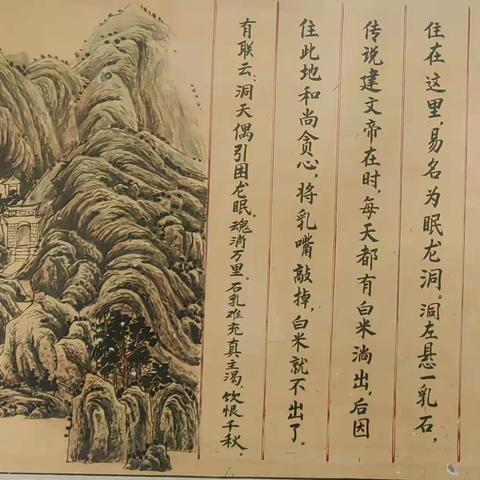 住在这里,易名为眠龙洞。洞左悬一乳石,
传说建文帝在时,每天都有白米淌出,后因
住此地和尚贪心,将乳嘴敲掉,白米就不出了。
有联云:洞天偶引困龙眠,魂消万里。石乳难充真主渴,饮恨千秋。